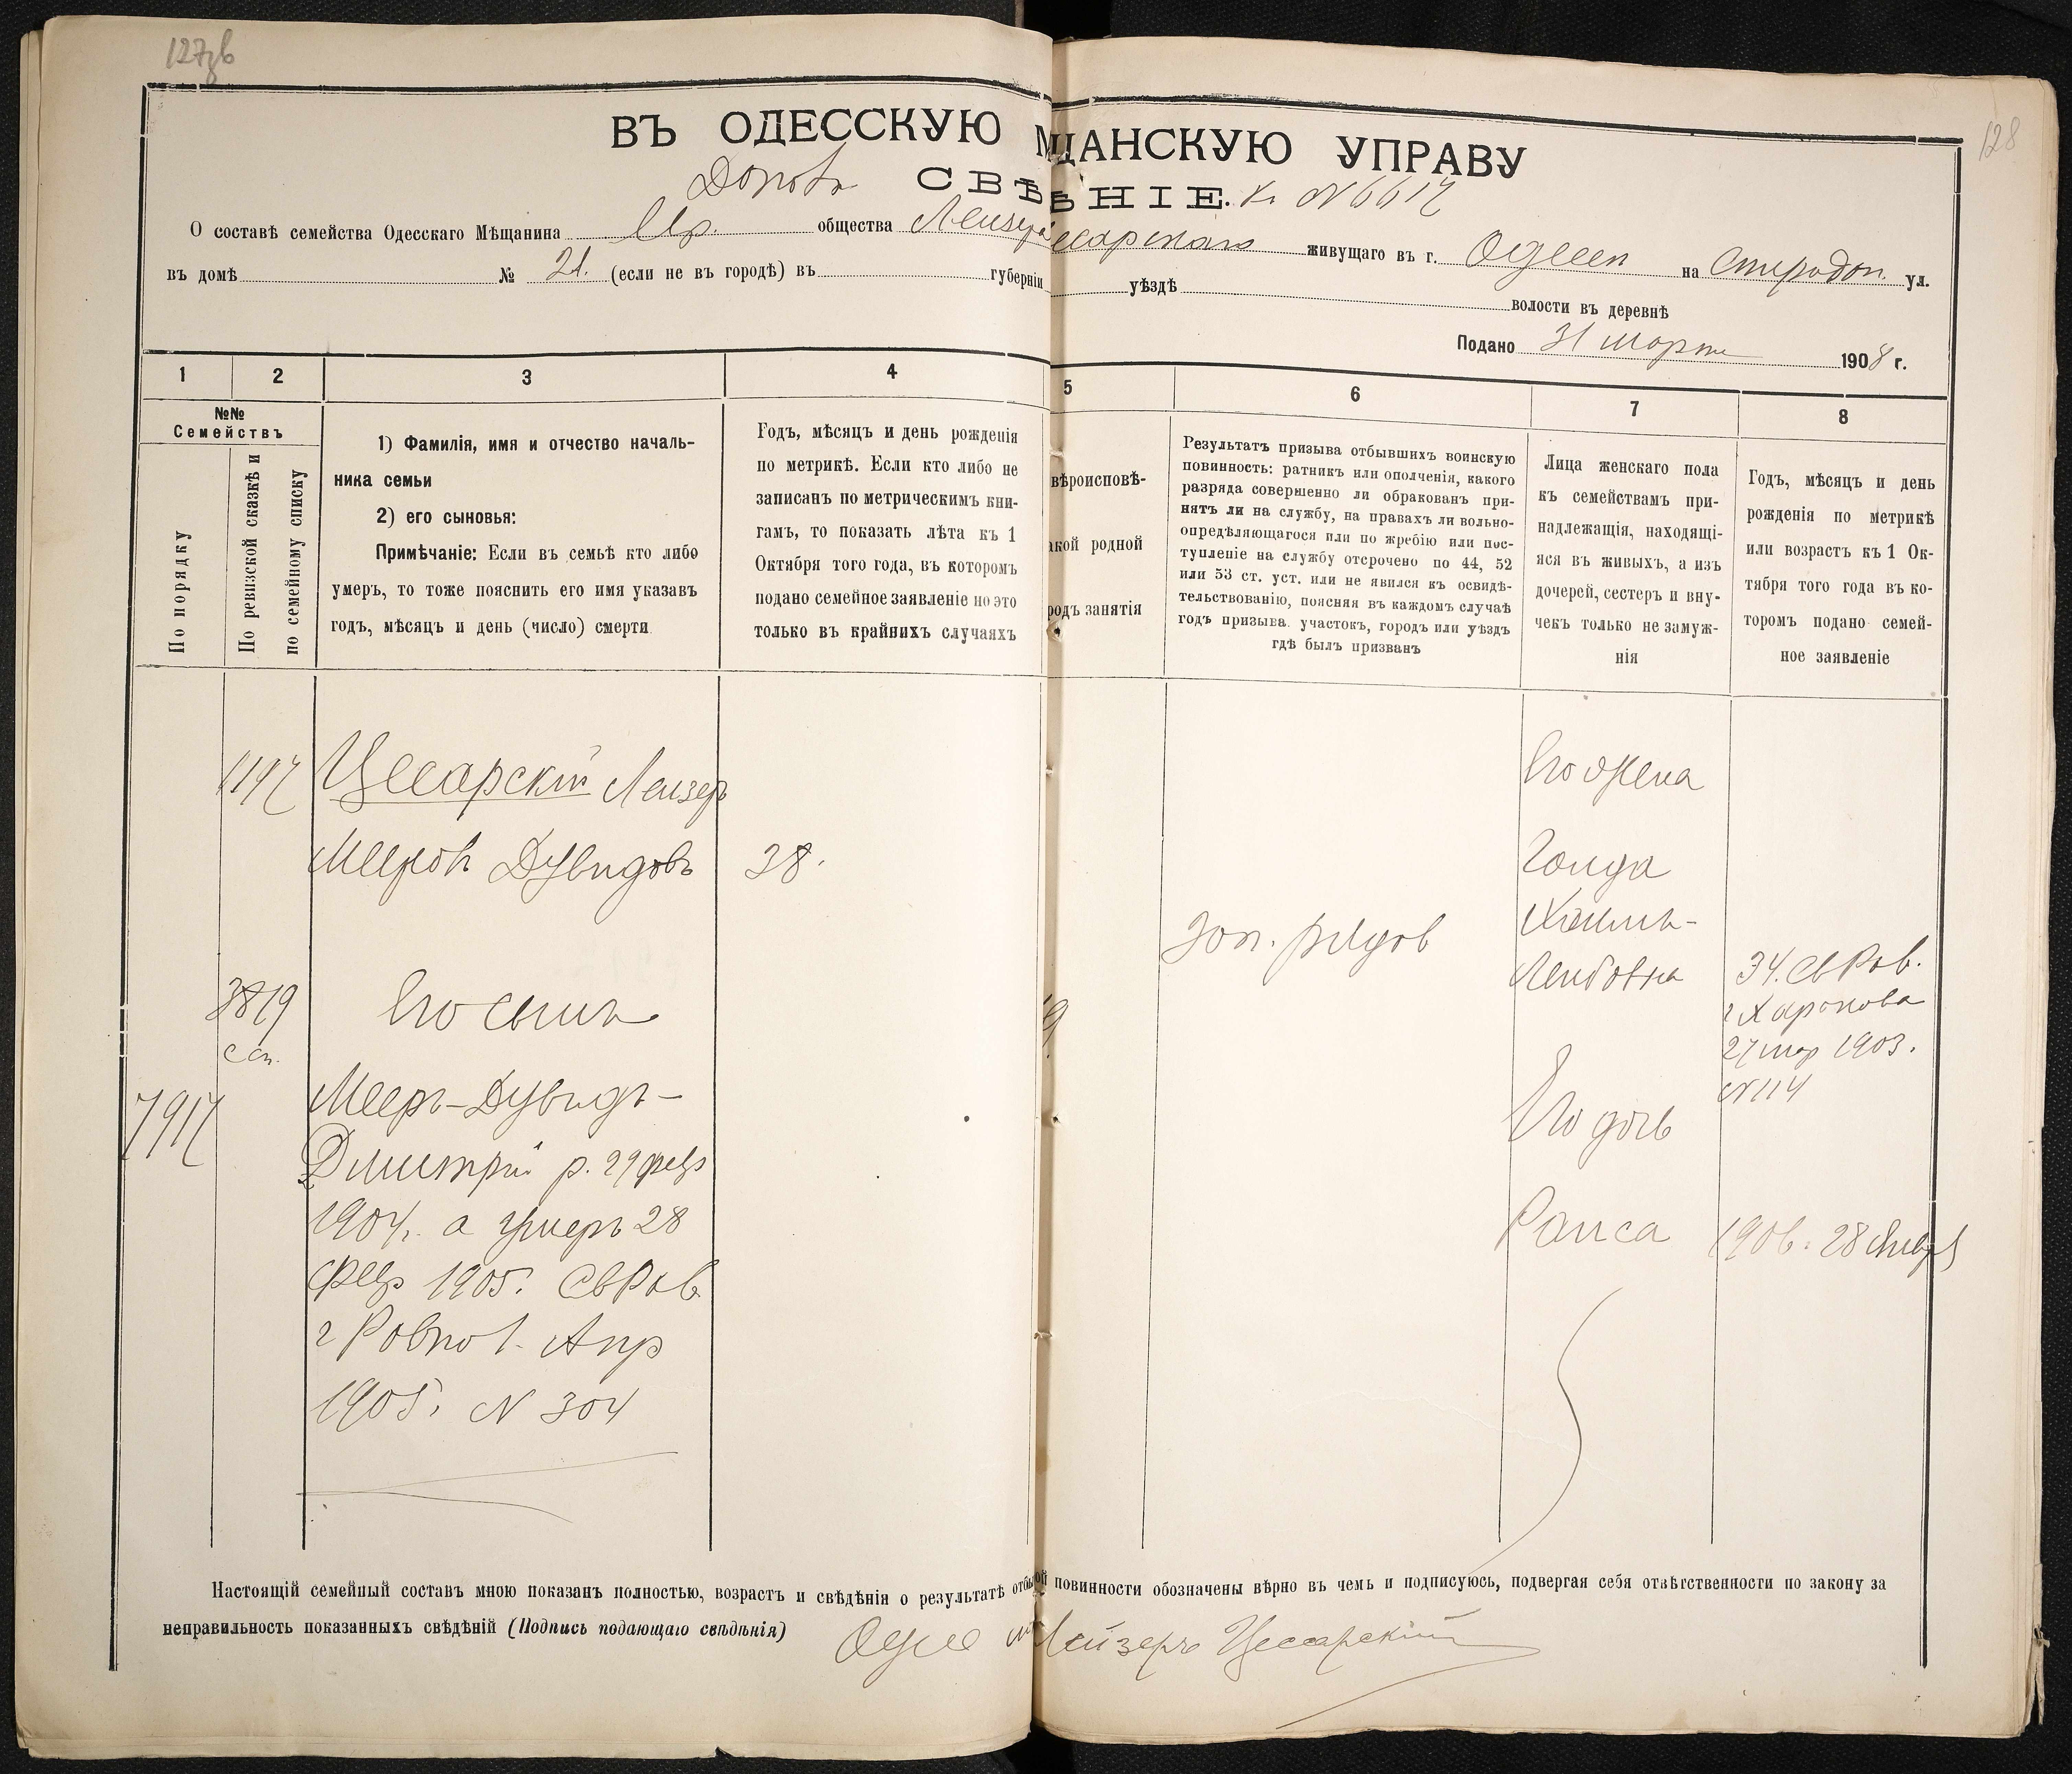 128
ВЪ ОДЕССКУЮ МЩАНСКУЮ УПРАВУ
СВѢ ѢНІЕ. къ N 6617
О составѣ семейства Одесскаго Мѣщанина Евр. общества Лейзера есарскаго живущаго въ г. Одессѣ на ул.
въ домѣ № 21. (если не въ городѣ) въ губерніи уѣздѣ
волости въ деревнѣ
Подано 31 марта 1908 г.
1 2 3 4 5 6 7 8
№№
Семействъ
По порядку
По ревизской сказкѣ и
по семейному списку
1) Фамилія, имя и отчество началь-
ника семьи
2) его сыновья:
Примѣчаніе: Если въ семьѣ кто либо
умеръ, то тоже пояснить его имя указавъ
годъ, мѣсяцъ и день (число) смерти
Годъ, мѣсяцъ и день рожденія
по метрикѣ. Если кто либо не
записанъ по метрическимъ кни-
гамъ, то показать лѣта къ 1
Октября того года, въ которомъ
подано семейное заявленіе но это
только въ крайнихъ случаяхъ
вѣроисповѣ-
акой родной
родъ занятія
Результатъ призыва отбывшихъ воинскую
повинность: ратникъ или ополченія, какого
разряда совершенно ли обракованъ при-
нятъ ли на службу, на правахъ ли вольно-
опредѣляющагося или по жребію или пос-
тупленіе на службу отсрочено по 44, 52
или 53 ст. уст. или не явился къ освидѣ-
тельствованію, поясняя въ каждомъ случаѣ
годъ призыва. участокъ, городъ или уѣздъ
гдѣ былъ призванъ
Лица женскаго пола
къ семействамъ при-
надлежащія, находящі-
яся въ живыхъ, а изъ
дочерей, сестеръ и вну-
чекъ только не замуж-
нія
Годъ, мѣсяцъ и день
рожденія по метрикѣ
или возрастъ къ 1 Ок-
тября того года въ ко-
торомъ подано семей-
ное заявленіе
1197 Цесарскій Лейзеръ
Мееровъ Дувидовъ 38.
3819
с сп.
Его сынъ
7917
Мееръ-Дувидъ-
Дмитрій р. 29 февр
1904. а умеръ 28
февр 1905. св Рав
г Ровно 1. Апр
1905. N 304
зап. рядов
Его жена
Голда
Хаимъ-
Лейбовна 34. св Рав.
г Харькова
27 мар 1903.
N 114
Его дочь
Раиса 1906. 28 Января
Настоящій семейный составъ мною показанъ полностью, возрастъ и свѣдѣнія о результатѣ отбы ой повинности обозначены вѣрно въ чемъ и подписуюсь, подвергая себя отвѣтственности по закону за
неправильность показанныхъ свѣдѣній (Подпись подающаго свѣдѣнія) Лейзеръ Цесарскій